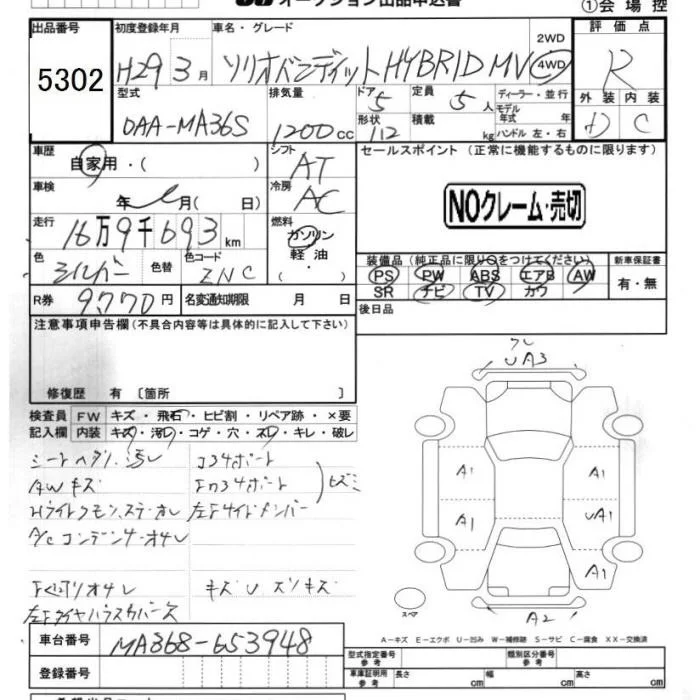 オークション出品申込書
①会場控
出品番号
5302
初度登録年月
H29年3月
車名・グレード
ソリオバンディット HYBRID MV
2WD
4WD
評価点
R
外装 内装
D C
型式
DAA-MA36S
排気量
1200cc
ドア
5
形状
112
定員
5人
積載
kg
ディーラー・並行
モデル年式 年
ハンドル 左・右
車歴
自家用・( )
シフト
AT
セールスポイント (正常に機能するものに限ります)
NOクレーム・売切
車検
年 月( 日)
冷房
AC
走行
16万9千693km
燃料
ガソリン
軽油
色
シルバー
色替
色コード
ZNC
装備品(純正品に限り○をつけてください)
PS PW ABS エアB AW
SR ナビ TV カワ
新車保証書
有・無
R券
9770円
名変通知期限 月 日
後日品
注意事項申告欄(不具合内容等は具体的に記入して下さい)
修復歴 有〔箇所 〕
検査員記入欄
FW キズ・飛石・ヒビ割・リペア跡・×要
内装 キズ・汚れ・コゲ・穴・スレ・キレ・破レ
AWキズ
コンデンサーオサレ
キズ U ズリキズ
UA3
A1
A1
A1
UA1
A1
A2
スペア
A-キズ E-エクボ U-凹み W-補修跡 S-サビ C-腐食 XX-交換済
車台番号
MA36S-653948
登録番号
型式指定番号 参考
類別区分番号 参考
車庫証明用 参考
長さ cm
幅 cm
高さ cm